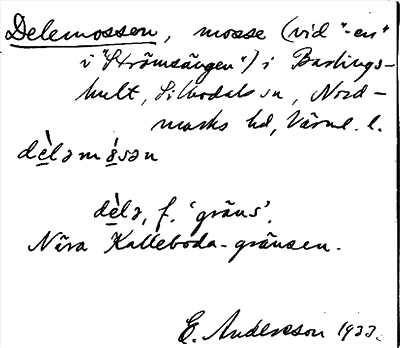 Delemossen, mosse (vid "-en"
i "Strömsängen") i Bastings-
hult, Silbodals sn, Nord-
marks hd, Värml. l.
dè̱ləmò̱sən
dè̱lə, f. 'gräns'.
Nära Kalleboda-gränsen.
E. Andersson 1933.